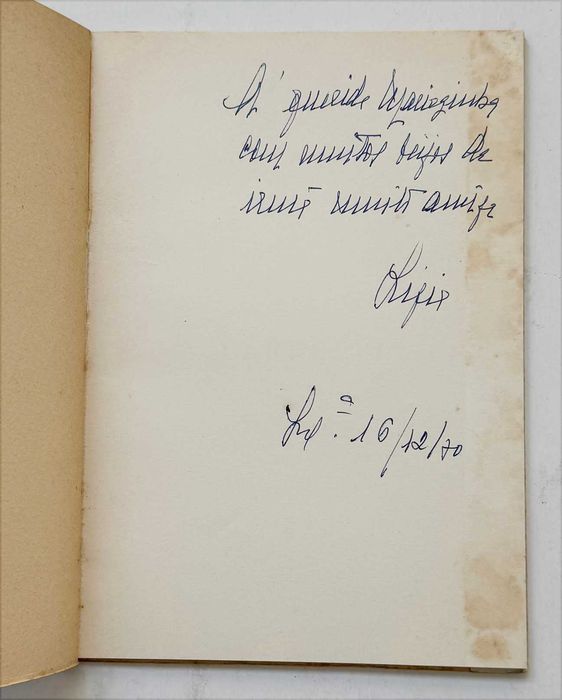 À querida Mariazinha
com muitos beijos da
irmã muito amiga
Ligia
Lxª. 16/12/70